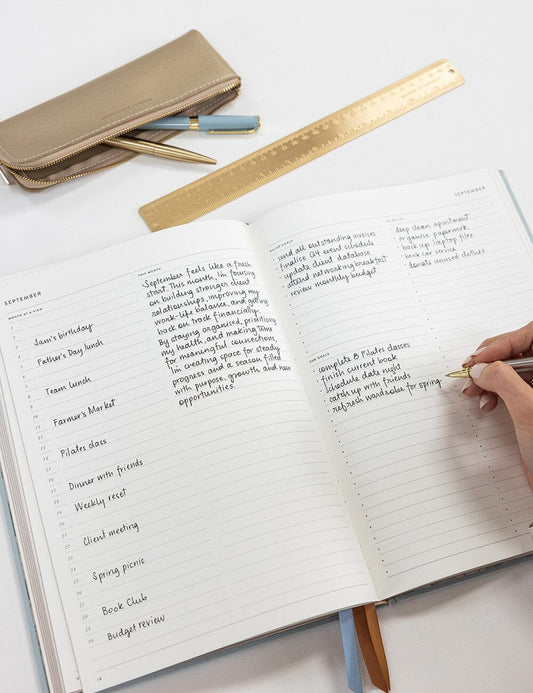 SEPTEMBER
MONTH AT A VIEW
Sam's birthday
Father's Day lunch
Team lunch
Farmer's Market
Pilates class
Dinner with friends
Weekly reset
Client meeting
Spring picnic
Book Club
Budget review
THIS MONTH
September feels like a fresh
start. This month, I'm focusing
on building stronger client
relationships, improving my
work-life balance, and getting
back on track financially.
By staying organised, prioritising
my health and making time
for meaningful connections,
I'm creating space for steady
progress and a season filled
with purpose, growth and new
opportunities.
SEPTEMBER
GOALS
send all outstanding invoices
finalise Q4 event schedule
update client database
attend networking breakfast
review monthly budget
TO DO LIST
deep clean apartment
organise paperwork
back up laptop files
book car service
donate unused clothes
GOALS
complete 8 Pilates classes
finish current book
schedule date night
catch up with friends
refresh wardrobe for spring